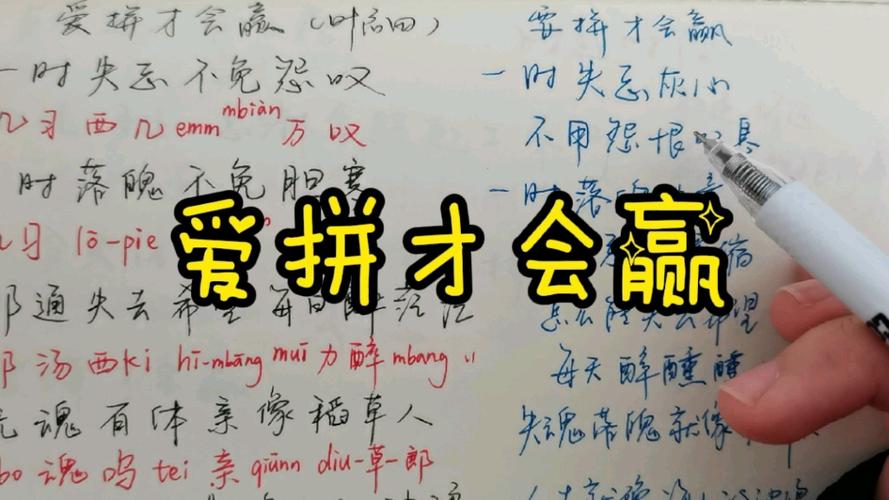 爱拼才会赢（叶启田）
一时失志不免怨叹
几习西几emm mbiàn 万叹
时落魄不免胆寒
几习 lō-pie
通失去希望每日醉茫茫
汤西ki hī-mbāng muī 力醉 mbang "
魂有体亲像稻草人
bo 魂呜 tei 亲 qiūnn diu-草-郎
爱拼才会赢
要拼才会赢
一时失志灰心
不用怨恨
一时落魄
怎么能失去希望
每天醉醺醺
失魂落魄就像